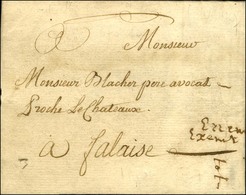 Monsieur
Monsieur Blacher pere avocat
Proche Le Chateaux.
a falaise